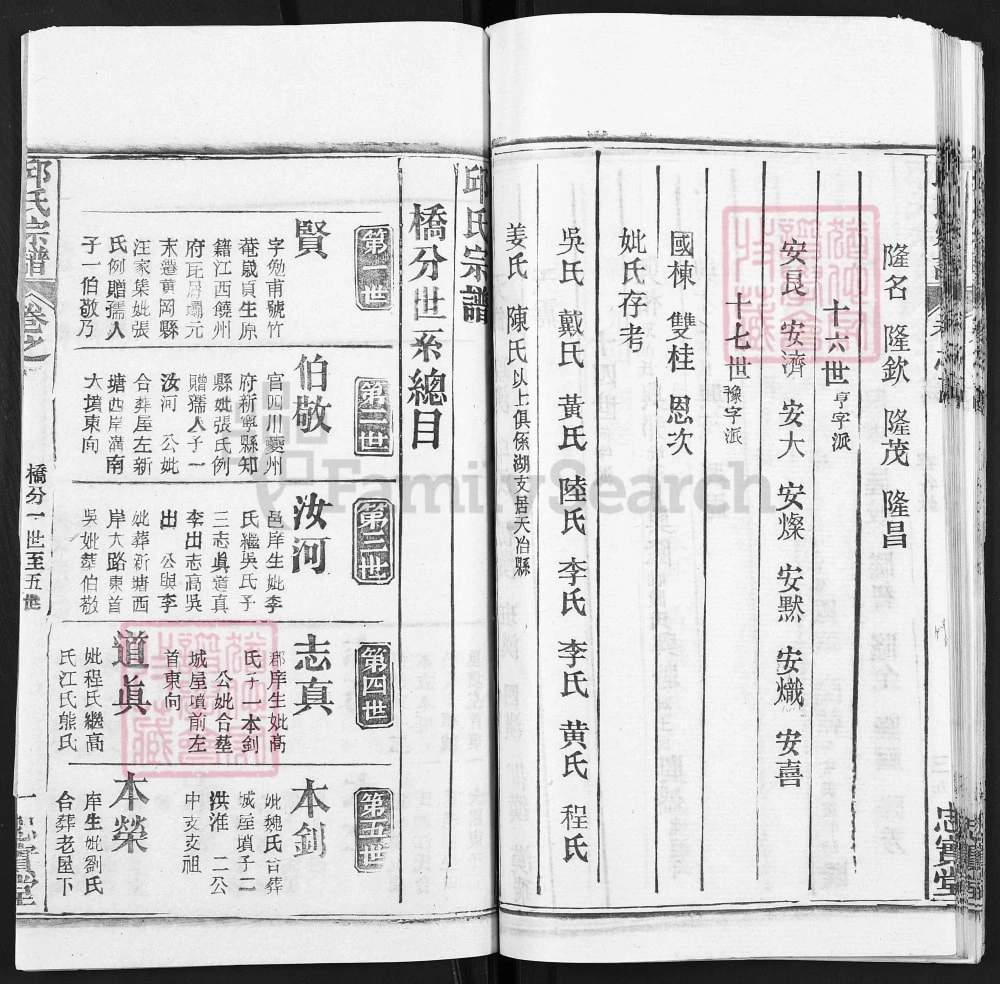 隆名 隆欽 隆茂 隆昌
十六世 亨字派
安良 安濟 安大 安燦 安默 安熾 安喜
十七世 豫字派
國棟 雙桂 恩次
妣氏存考
吳氏 戴氏 黃氏 陸氏 李氏 李氏 黃氏 程氏
姜氏 陳氏 以上俱係湖支居大冶縣
忠實堂
邱氏宗譜
橋分世系總目
第一世
賢
字勉甫號竹
菴歲貢生原
籍江西饒州
府瓦屑壩元
末遷黃岡縣
汪家集妣張
氏例贈孺人
子一伯敬乃
第二世
伯敬
官四川夔州
府新寧縣知
縣妣張氏例
贈孺人子一
汝河 公妣
合葬屋左新
塘西岸溝南
大墳東向
第三世
汝河
邑庠生妣李
氏繼吳氏子
三志眞道真
李出志高吳
出 公與李
妣葬新塘西
岸大路東首
吳妣葬伯敬
第四世
志真
郡庠生妣高
氏子一本釗
公妣合塟
城屋墳前左
首東向
道眞
妣程氏繼高
氏江氏熊氏
第五世
本釗
妣魏氏合葬
城屋墳子二
洪淮 二公
中支支祖
本榮
庠生妣劉氏
合葬老屋下
邱氏宗譜
卷之
橋分一世至五世
一
忠實堂
FamilySearch